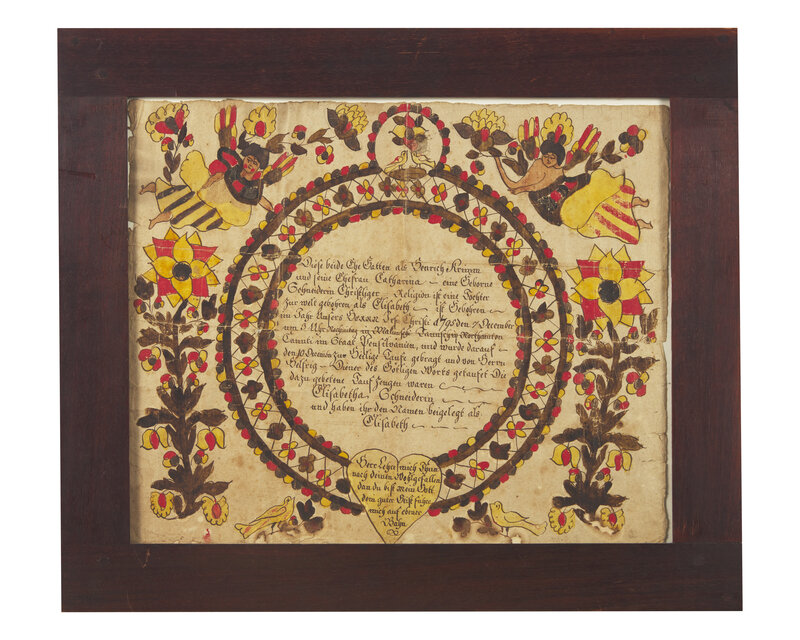 Diese beide Ehe Gatten als Henrich
und seine Ehefrau Catharina – eine Geborne
Schneiderin Christliger – Religion ist eine Tochter
Zur welt gebohren als Elisabeth – ist Gebohren
im Jahr Unsers Herrn Jes. Christi 1795 den December
um 5 Uhr in Taunschip Northamton
Caunti im Staat Pensilvanien, und wurde darauf
den 10 zur Heilige Taufe gebragt und von Herrn
Helfrig – Diener des Götligen Worts getaufet Die
dazu gebetene Tauf zeugen waren
Elisabetha Schneiderin
und haben ihr den Namen beigelegt als
Elisabeth
Herr Lehre mich Thun
nach deinen Wohlgefallen
dan du bist mein Gott
dein guter Geist führe
mich auf ebener
Bahn